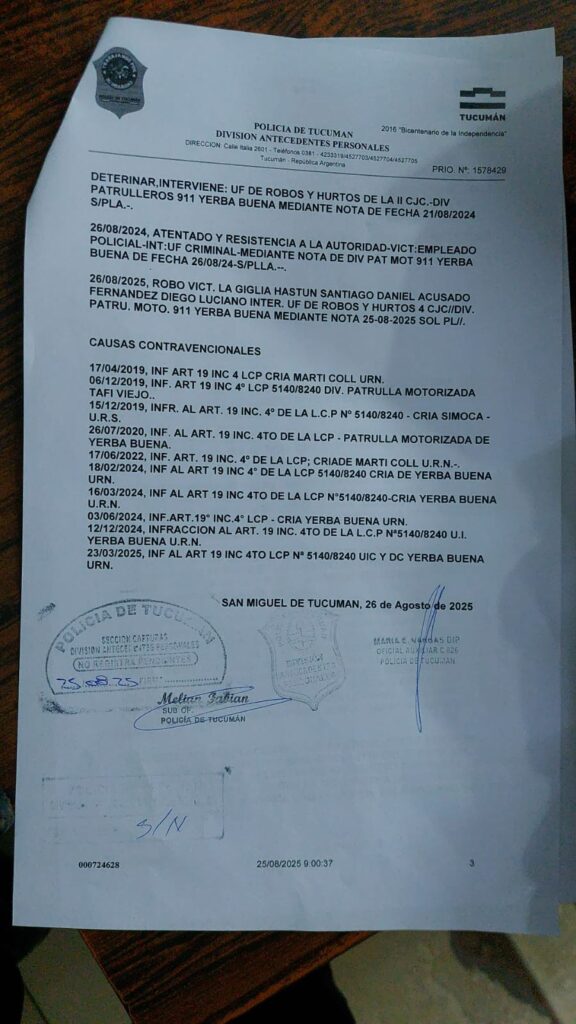 TUCUMÁN
POLICIA DE TUCUMAN
2016 "Bicentenario de la Independencia"
DIVISION ANTECEDENTES PERSONALES
DIRECCION: Calle Italia 2601 - Teléfonos 0381 - 4233319/4527703/4527704/4527705
Tucumán - República Argentina
PRIO. Nº: 1578429
DETERINAR,INTERVIENE: UF DE ROBOS Y HURTOS DE LA II CJC.-DIV
PATRULLEROS 911 YERBA BUENA MEDIANTE NOTA DE FECHA 21/08/2024
S/PLA.-.
26/08/2024, ATENTADO Y RESISTENCIA A LA AUTORIDAD-VICT:EMPLEADO
POLICIAL-INT:UF CRIMINAL-MEDIANTE NOTA DE DIV PAT MOT 911 YERBA
BUENA DE FECHA 26/08/24-S/PLLA.--.
26/08/2025, ROBO VICT. LA GIGLIA HASTUN SANTIAGO DANIEL ACUSADO
FERNANDEZ DIEGO LUCIANO INTER. UF DE ROBOS Y HURTOS 4 CJC//DIV.
PATRU. MOTO. 911 YERBA BUENA MEDIANTE NOTA 25-08-2025 SOL PL//.
CAUSAS CONTRAVENCIONALES
17/04/2019, INF ART 19 INC 4 LCP CRIA MARTI COLL URN.
06/12/2019, INF. ART 19 INC 4º LCP 5140/8240 DIV. PATRULLA MOTORIZADA
TAFI VIEJO..
15/12/2019, INFR. AL ART. 19 INC. 4º DE LA L.C.P Nº 5140/8240 - CRIA SIMOCA -
U.R.S.
26/07/2020, INF. AL ART. 19 INC. 4TO DE LA LCP - PATRULLA MOTORIZADA DE
YERBA BUENA.
17/06/2022, INF. ART. 19 INC. 4º DE LA LCP; CRIADE MARTI COLL U.R.N.-.
18/02/2024, INF AL ART 19 INC 4° DE LA LCP 5140/8240 CRIA DE YERBA BUENA
URN.
16/03/2024, INF AL ART 19 INC 4TO DE LA LCP N°5140/8240-CRIA YERBA BUENA
U.R.N.
03/06/2024, INF.ART.19° INC.4° LCP - CRIA YERBA BUENA URN.
12/12/2024, INFRACCION AL ART. 19 INC. 4TO DE LA L.C.P Nª5140/8240 U.I.
YERBA BUENA U.R.N.
23/03/2025, INF AL ART 19 INC 4TO LCP Nª 5140/8240 UIC Y DC YERBA BUENA
URN.
SAN MIGUEL DE TUCUMAN, 26 de Agosto de 2025
POLICIA DE TUCUMAN
SECCION CAPTURAS
DIVISION ANTECEDENTES PERSONALES
NO REGISTRA PENDIENTES
25.08.25 FIRMA
Melian Fabian
SUB OF.
POLICÍA DE TUCUMÁN
DIVISION
ANTECEDENTES
PERSONALES
MARIA E. VARGAS DIP
OFICIAL AUXILIAR C.826
POLICIA DE TUCUMAN
S/N
000724628
25/08/2025 9:00:37
3